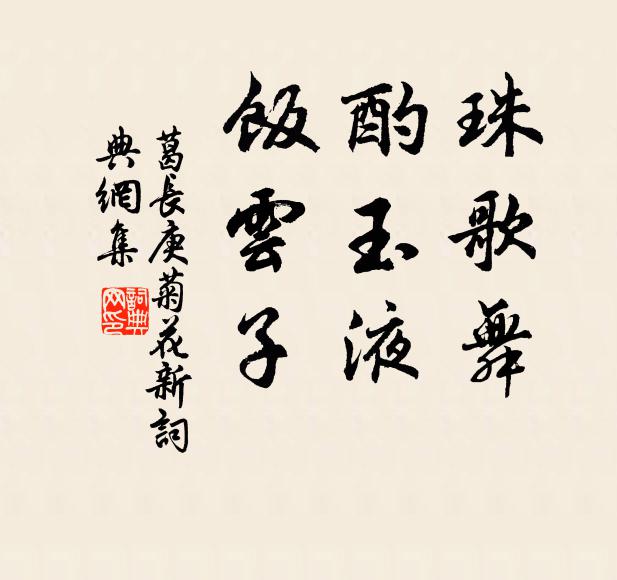 珠歌舞
酌玉液
飯雲子
葛長庚菊花新詞
典網集
詞典网印